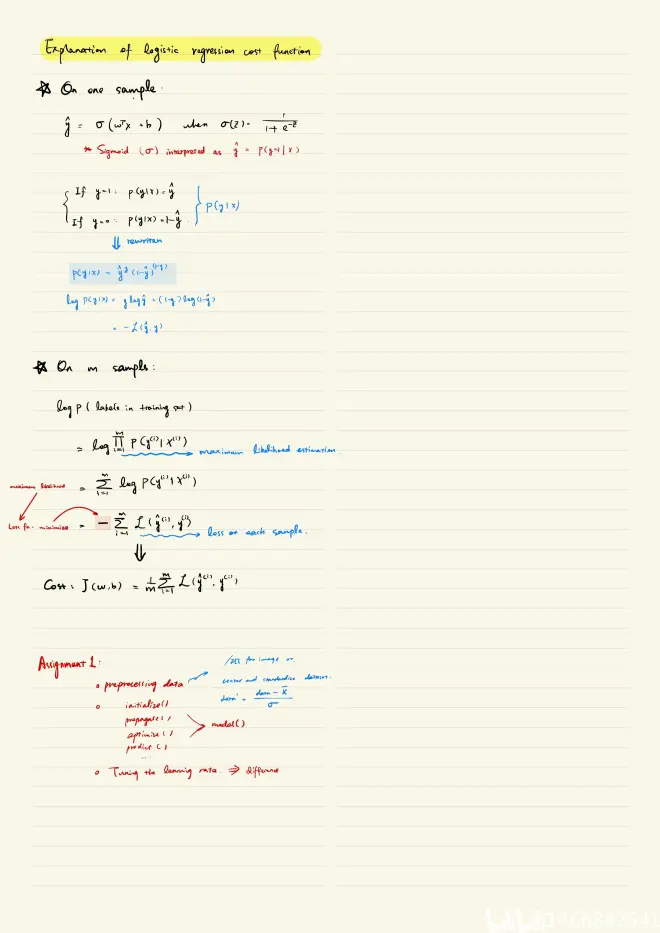 Explanation of logistic regression cost function
☆ On one sample.
ŷ = σ(wᵀx + b) when σ(z) = 1 / (1 + e^-z)
* Sigmoid (σ) interpreted as ŷ = P(y=1|x)
If y=1: P(y|x) = ŷ
If y=0: P(y|x) = 1-ŷ
} P(y|x)
⇓ rewritten
P(y|x) = ŷ^y (1-ŷ)^(1-y)
log P(y|x) = y log ŷ + (1-y) log (1-ŷ)
= -L(ŷ, y)
☆ On m sampls:
log P (labels in training set)
= log ∏_{i=1}^{m} P(y^(i) | x^(i)) → maximum likelihood estimation.
maximum likelihood
= ∑_{i=1}^{m} log P(y^(i) | x^(i))
Loss fn. minimize
= - ∑_{i=1}^{m} L(ŷ^(i), y^(i)) → loss on each sample.
⇓
Cost: J(w,b) = 1/m ∑_{i=1}^{m} L(ŷ^(i), y^(i))
Assignment 1:
/255 for image or
∘ preprocessing data
center and standardize dataset.
data' = (data - x̄) / σ
∘ initialize()
propagate()
optimize()
predict()
....
model()
∘ Tuning the learning rate. ⇒ difference